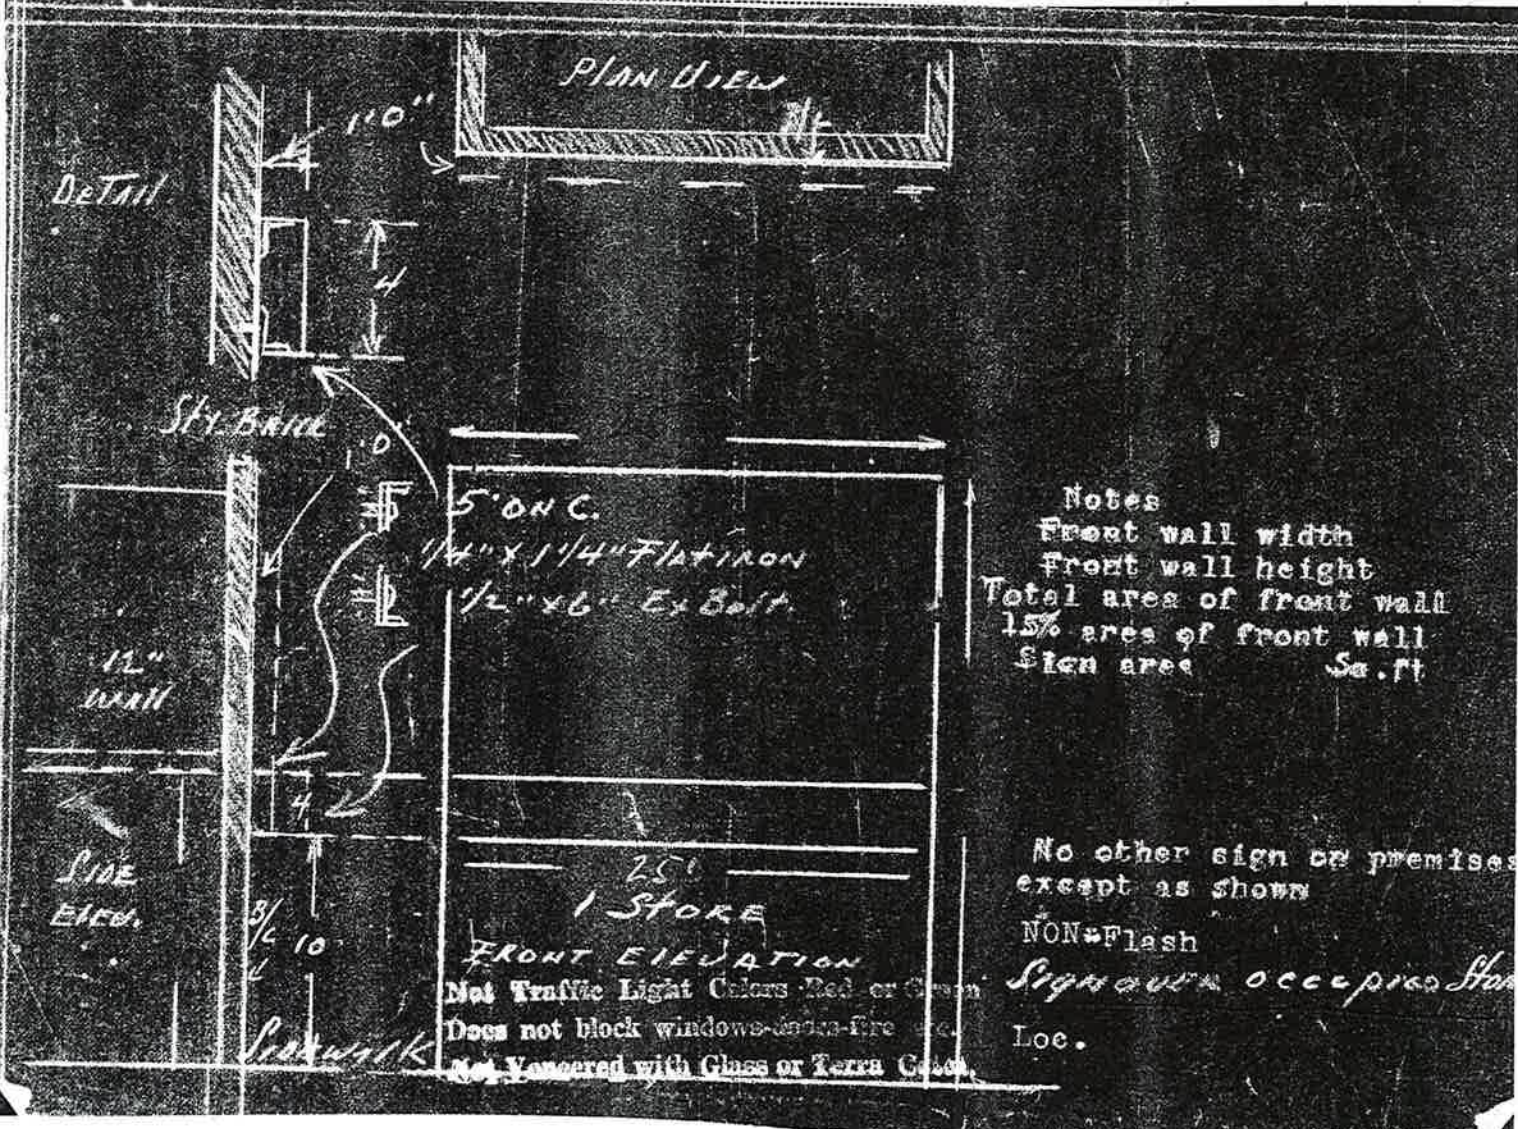 PLAN VIEW
1'0"
DETAIL
4
Sty. BRICK
1'0"
5' ON C.
1/4" X 1 1/4" FLATIRON
1/2" x 6" Ex Bolt.
12"
WALL
4
SIDE
ELEV.
B/L
10
SIDEWALK
25'
1 STORE
FRONT ELEVATION
Not Traffic Light Colors Red or Green
Does not block windows-doors-fire etc.
Not Veneered with Glass or Terra Cotta.
Notes
Front wall width
Front wall height
Total area of front wall
15% area of front wall
Sign area Sq.ft
No other sign on premises
except as shown
NON-Flash
Sign over occupied Stor
Loc.